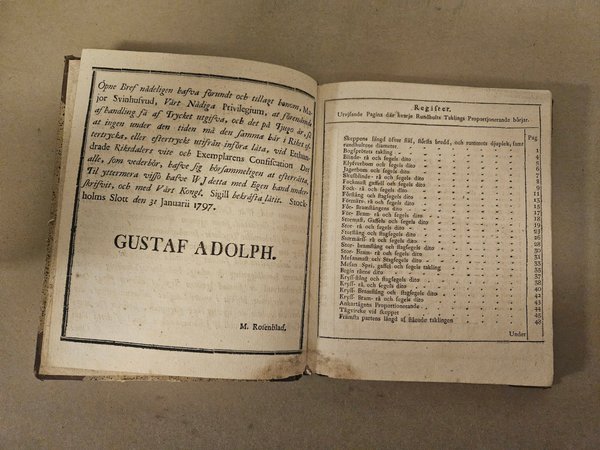 Öpne Bref nådeligen hafva förundt och tillagt honom, Ma-
jor Svinhufvud, Vårt Nådiga Privilegium, at förenämde
af handling få af Trycket utgifva, och det på Tjugo år, så
at ingen under den tiden må den samma här i Riket ef-
tertrycka, eller eftertryckt utifrån införa låta, vid Etthun-
drade Riksdalers vite och Exemplarens Confiscation Det
alle, som vederbör, hafve sig hörsammeligen at efterrätta.
Til yttermera visso hafve WJ detta med Egen hand under-
skrifvit, och med Vårt Kongl. Sigill bekräfta låtit. Stock-
holms Slott den 31 Januarii 1797.
GUSTAF ADOLPH.
M. Rosenblad.
Register.
Utvisande Pagina där hvarje Rundhults Taklings Proportionerande börjar.
Pag
Skeppens längd öfver stäf, största bredd, och runimots djuplek, samt
rundhultens dito 1
Bogspröters takling 4
Blinde- rå och segels dito 5
Klyfverbom och segels dito 6
Jagerbom och segels dito 7
Skufblinde- rå och segels dito 8
Fockmast gaffel och segels dito 9
Fock- rå och segels dito
För-stång och stagsegels dito
Förmärs- rå och segels dito
För- Bramstångens dito
För- Bram- rå och segels dito 17
Stormast, Gaffels och segels dito
Stor- rå och segels dito
Storstång och stagsegels dito
Stormärs- rå och segels dito
Stor- bramstång och stagsegels dito
Stor- Bram- rå och segels dito
Mesanmast och Stagsegels dito
Mesan Spri, gaffel och segels takling
Begin råens dito 37
Kryss-stång och stagsegels dito
Kryss- rå och segels dito
Kryss- Bramstång och stagsegels dito
Kryss- Bram- rå och segels dito
Ankartågens Proportionerande
Tågvircke vid skeppet 45
Främsta partens längd af stående taklingen 48
Under